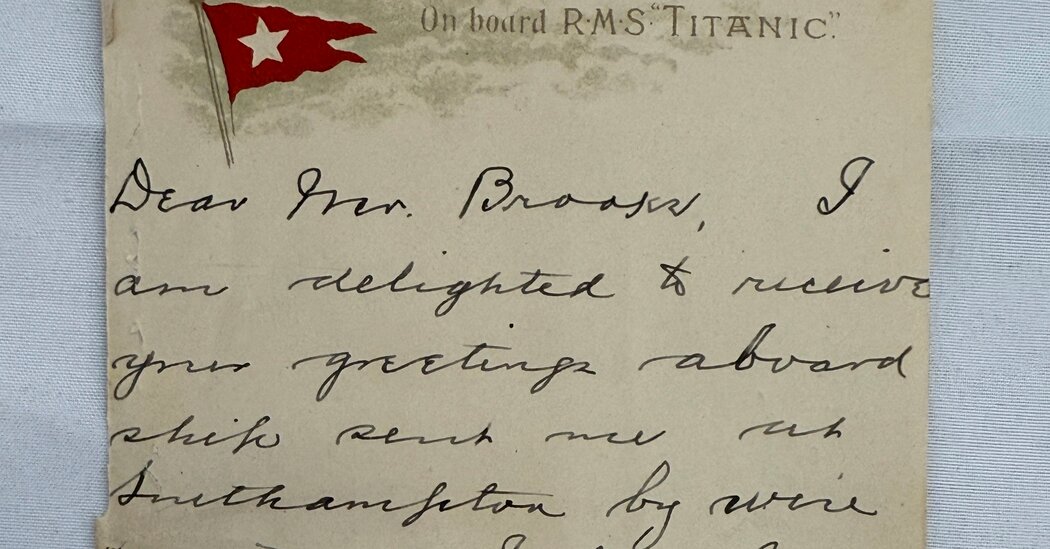 On board R·M·S "TITANIC".
Dear Mr. Brooks, I
am delighted to receive
your greetings aboard
ship sent me at
Southampton by wire